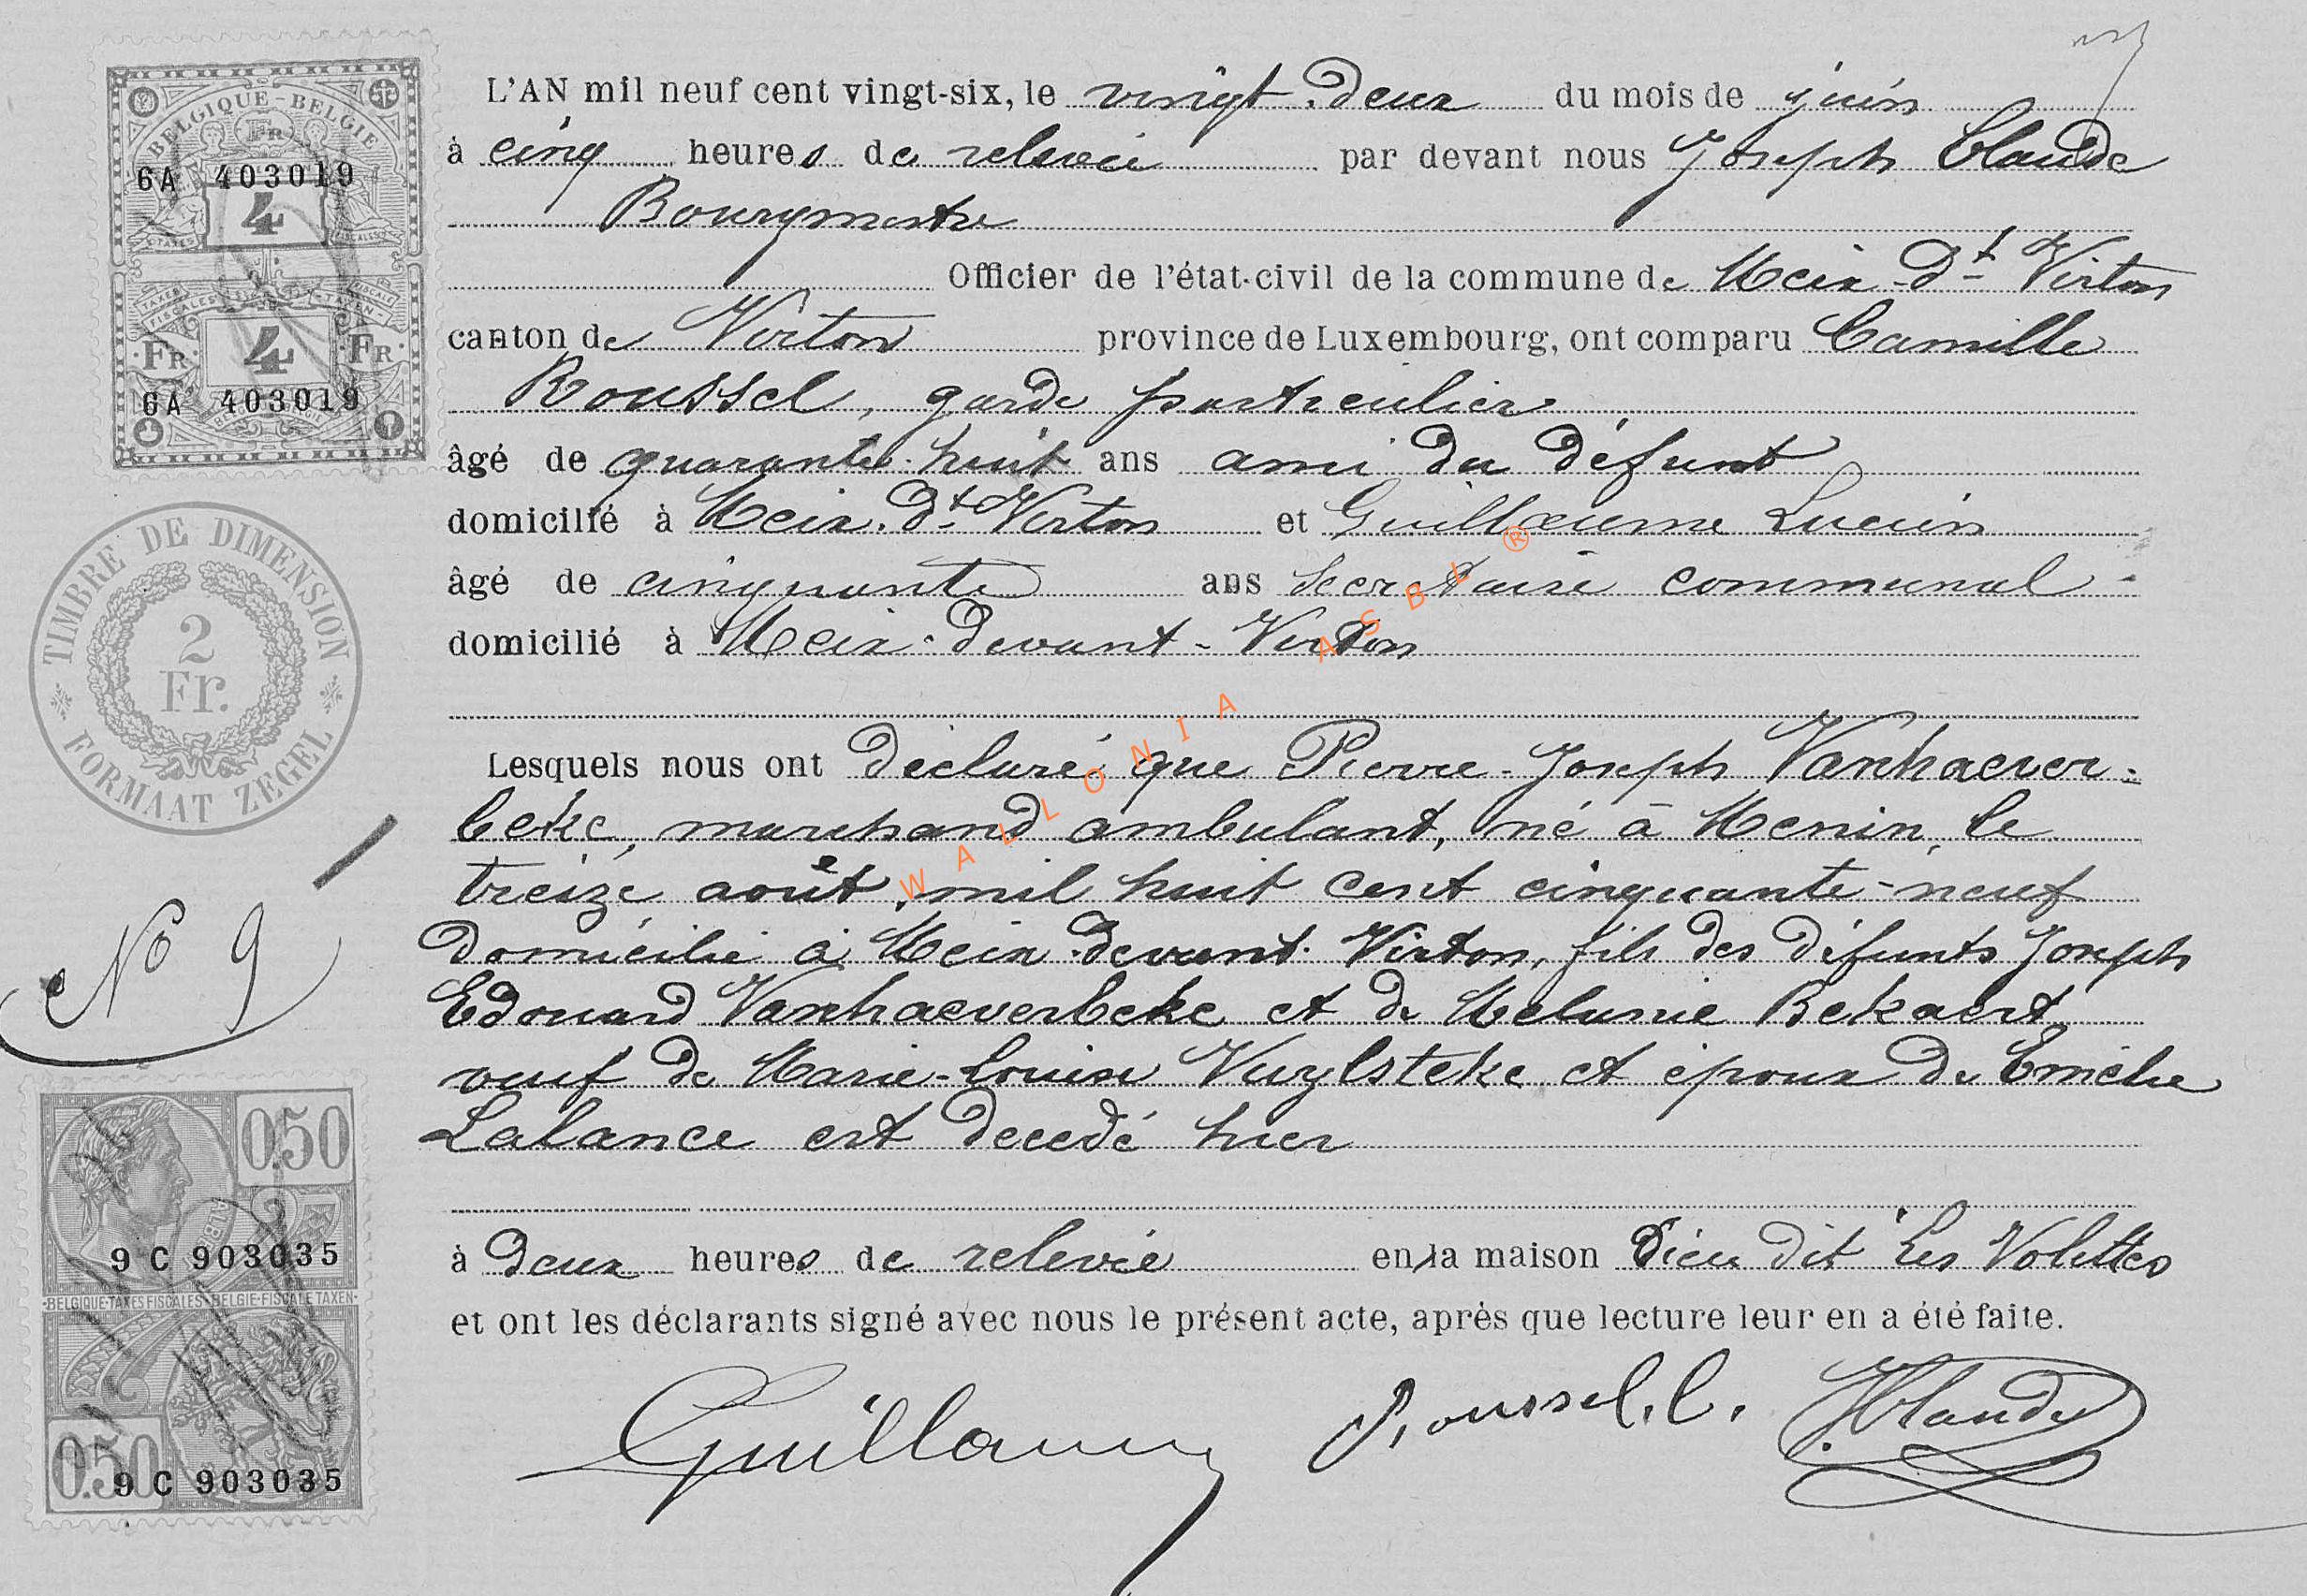 BELGIQUE-BELGIE
FR
6A 403019
4
TAXES FISCALES
4
FR. FR.
6A 403019
TIMBRE DE DIMENSION
2
Fr.
FORMAAT ZEGEL
No 9
0.50
ALBERT
9 C 903035
BELGIQUE-TAXES FISCALES-BELGIE-FISCALE TAXEN
0.50
9 C 903035
L'AN mil neuf cent vingt-six, le vingt-deux du mois de juin
à cinq heures de relevée par devant nous Joseph Claude
Bourgmestre
Officier de l'état-civil de la commune de Meix-Dt Virton
canton de Virton province de Luxembourg, ont comparu Camille
Roussel, garde particulier
âgé de quarante-huit ans ami du défunt
domicilié à Meix-Dt Virton et Guillaume Lucien
âgé de cinquante ans secrétaire communal
domicilié à Meix-devant-Virton
Lesquels nous ont déclaré que Pierre-Joseph Vanhaever-
beke, marchand ambulant, né à Menin, le
treize août mil huit cent cinquante-neuf
domicilié à Meix-devant-Virton, fils des défunts Joseph
Edouard Vanhaeverbeke et de Melanie Bekaert
veuf de Marie-Louise Vuylsteke et époux de Emélie
Lalance est décédé hier
à deux heures de relevée en la maison lieu dit Les Volettes
et ont les déclarants signé avec nous le présent acte, après que lecture leur en a été faite.
Guillaume Roussel. C. J Claude
WALLONIA ASBL ®